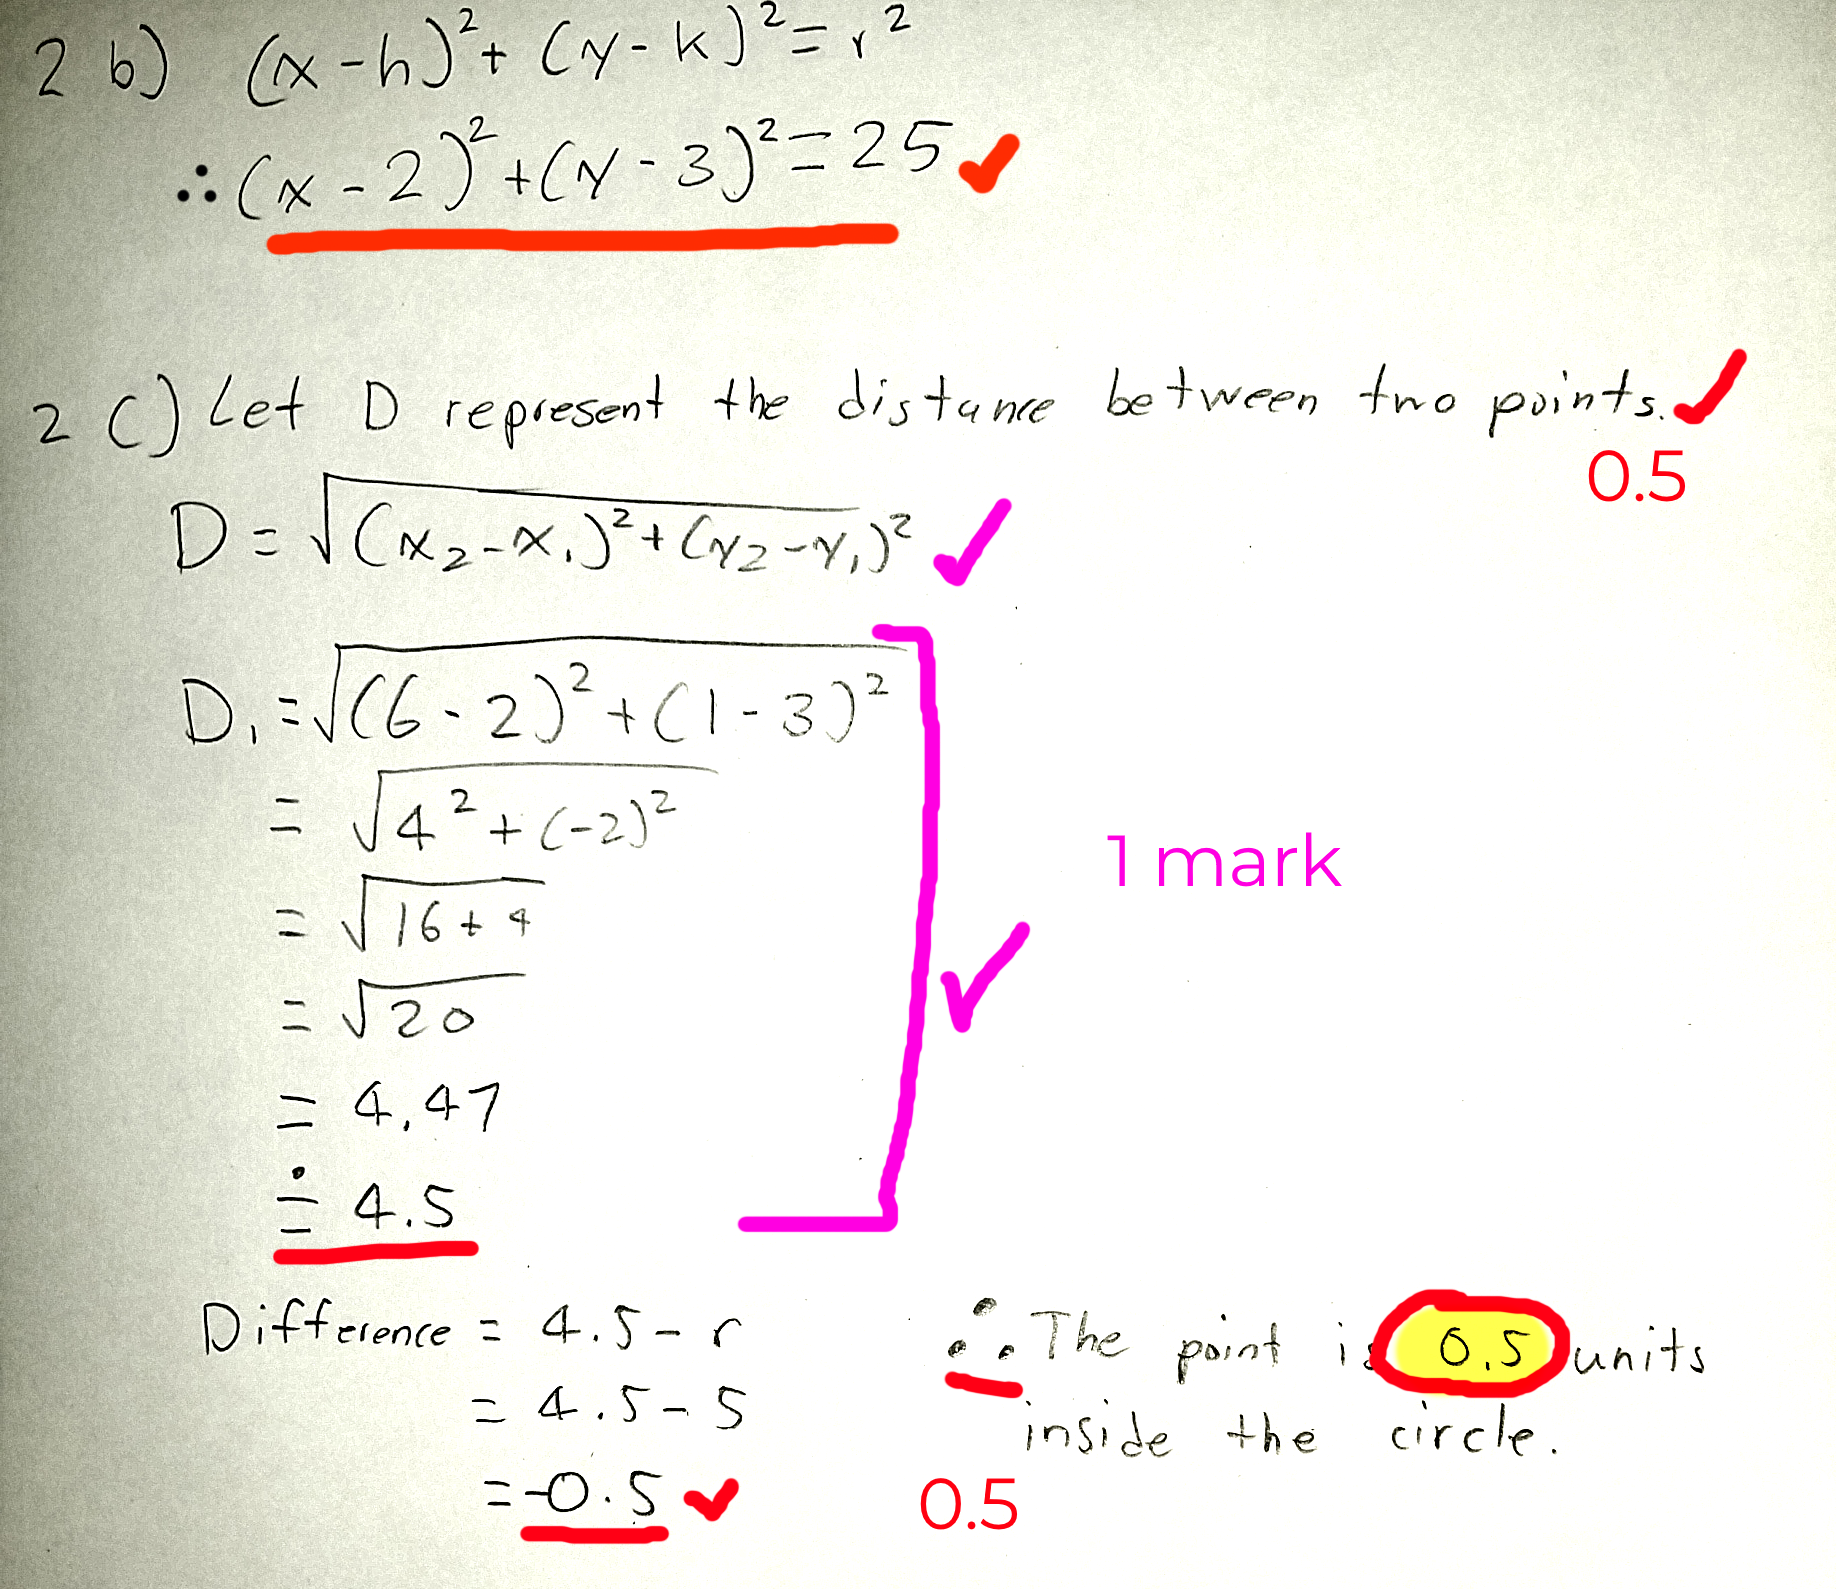 2 b) (x-h)²+(y-k)²=r²
∴(x-2)²+(y-3)²=25
2 c) Let D represent the distance between two points.
0.5
D=√(x₂-x₁)²+(y₂-y₁)²
D₁=√(6-2)²+(1-3)²
=√4²+(-2)²
1 mark
=√16+4
=√20
=4.47
≐4.5
Difference = 4.5-r
=4.5-5
=-0.5
∴ The point is 0.5 units
inside the circle.
0.5